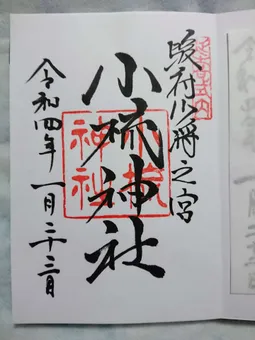 駿府少将之宮
小梳神社
令和四年一月二十三日
小梳
神社